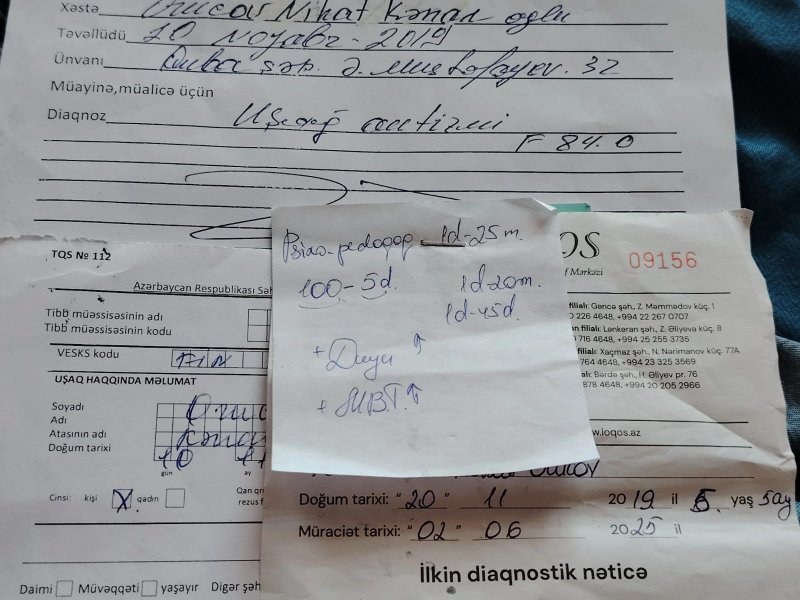 Xəstə Orucov Nihat Kənan oglu
Təvəllüdü 20 noyabr - 2019
Ünvanı Quba şəh. Ə. Mustafayev. 32
Müayinə,müalicə üçün
Diaqnoz Uşaq autizmi
F 84.0
TQS № 112
Azərbaycan Respublikası Səh
Tibb müəssisəsinin adı
Tibb müəssisəsinin kodu
VESKS kodu FIN
UŞAQ HAQQINDA MƏLUMAT
Soyadı Oruc
Adı
Atasının adı Kəna
Doğum tarixi
gün ay
Cinsi: kişi X qadın
Qan qr
rezus f
Daimi Müvəqqəti yaşayır Digər şəh
Psixo-pedaqoq 1d-25m.
100-5d. 1d-20m
1d-45d.
+ Duyu ↑
+ MBT. ↑
OS
09156
f Mərkəzi
filialı: Gəncə şəh., Z. Məmmədov küç. 1
226 4648, +994 22 267 0707
n filialı: Lənkəran şəh., Z. Əliyeva küç. 8
716 4648, +994 25 255 3735
filialı: Xaçmaz şəh., N. Nərimanov küç. 77A
764 4648, +994 23 325 3569
filialı: Bərdə şəh., H. Əliyev pr. 76
878 4648, +994 20 205 2966
w.loqos.az
Doğum tarixi: “20” 11 2019 il 5. yaş 5ay
Müraciət tarixi: “02” 06 2025 il
İlkin diaqnostik nəticə